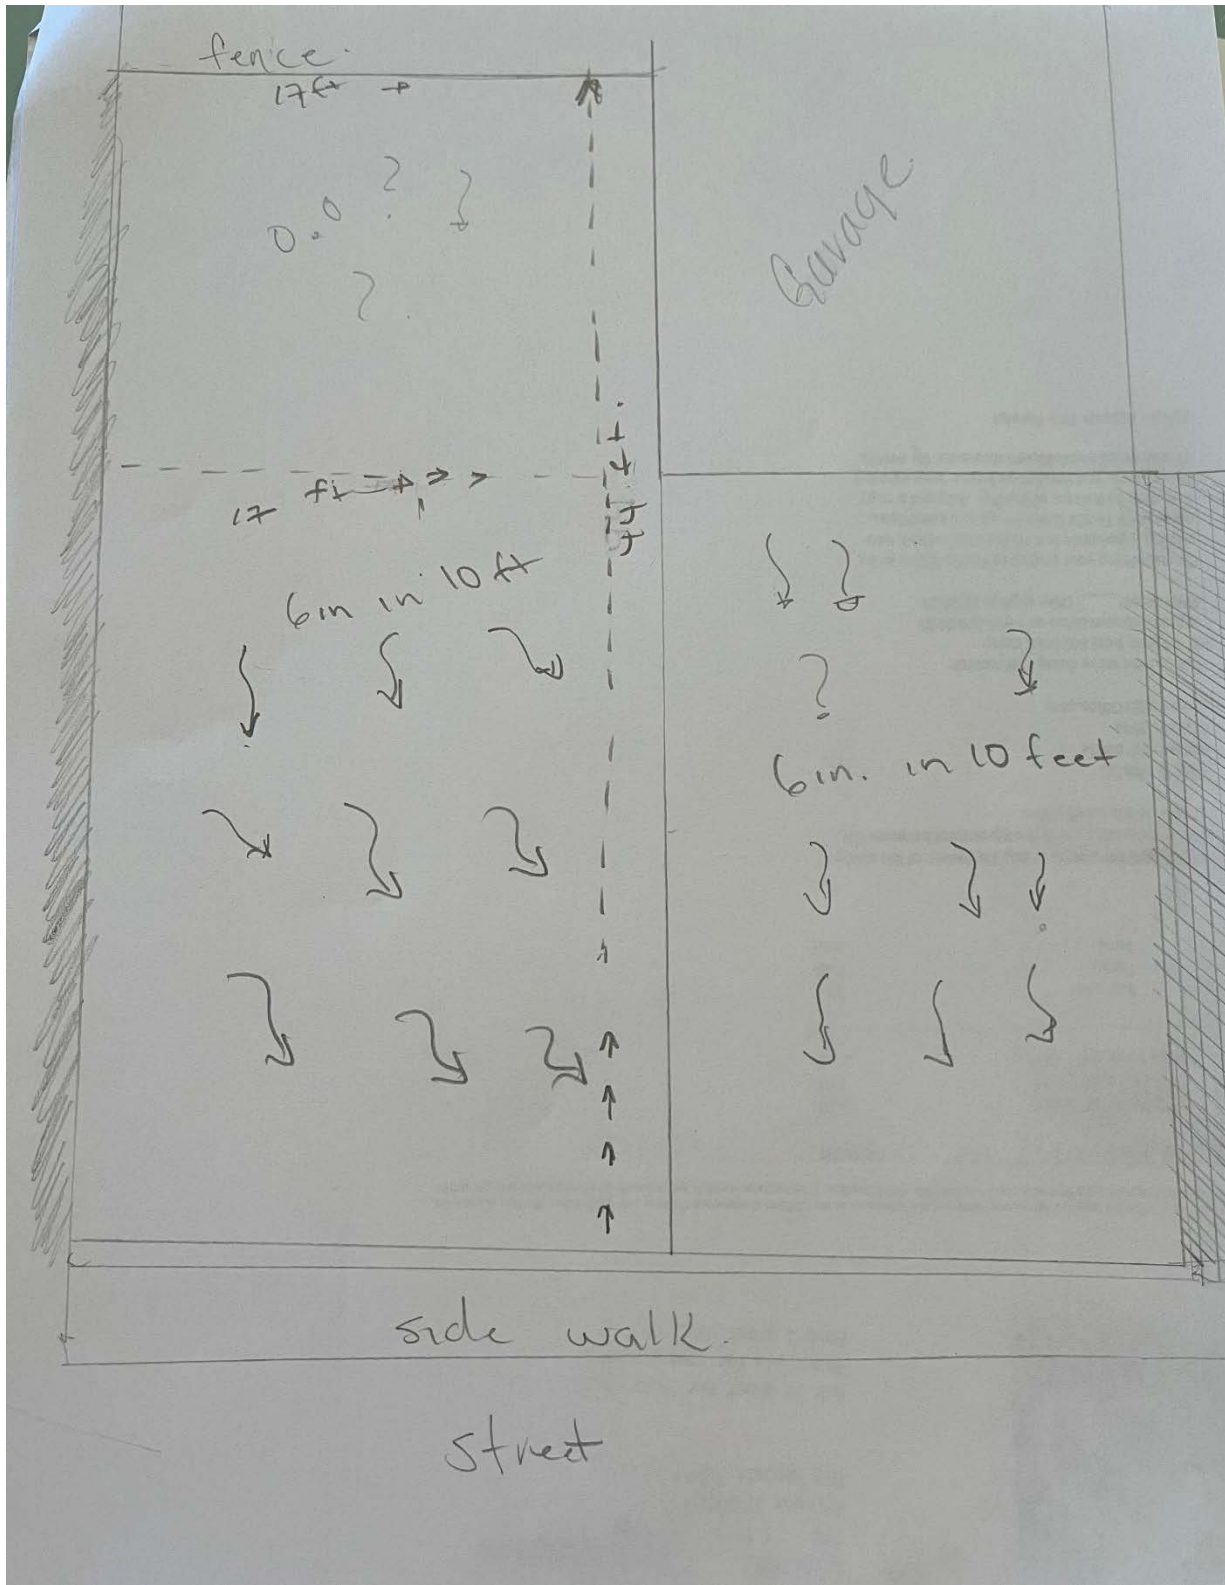 fence.
17 ft
Garage
0.0 ? ?
?
44 ft.
17 ft
6 in in 10 ft
?
6 in. in 10 feet
side walk.
street